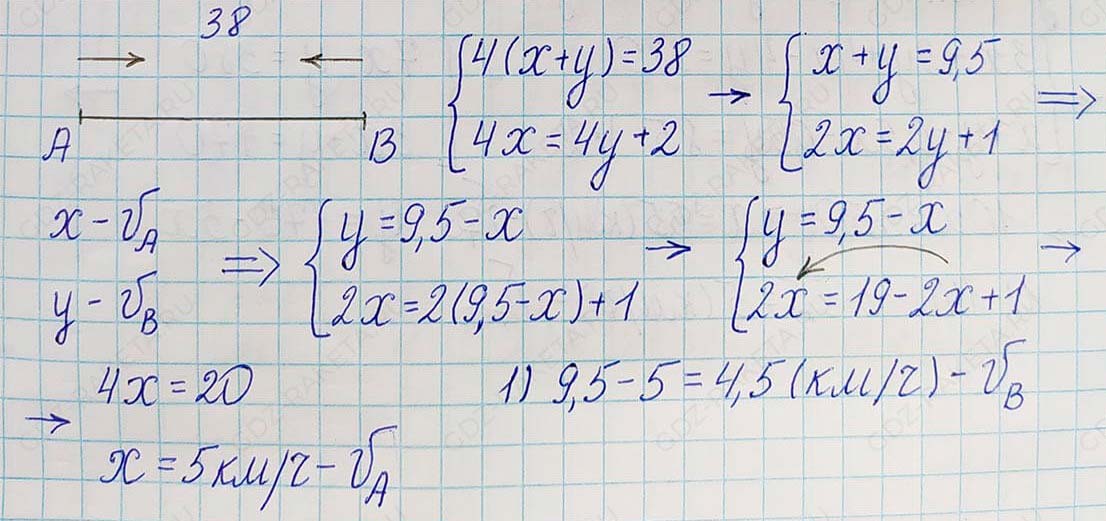 38
A B
{4(x+y)=38
4x=4y+2 → {x+y=9,5
2x=2y+1 ⇒
x - v_A
y - v_B
⇒ {y=9,5-x
2x=2(9,5-x)+1 → {y=9,5-x
2x=19-2x+1 →
→ 4x=20
x=5км/ч - v_A
1) 9,5-5=4,5(км/ч) - v_B